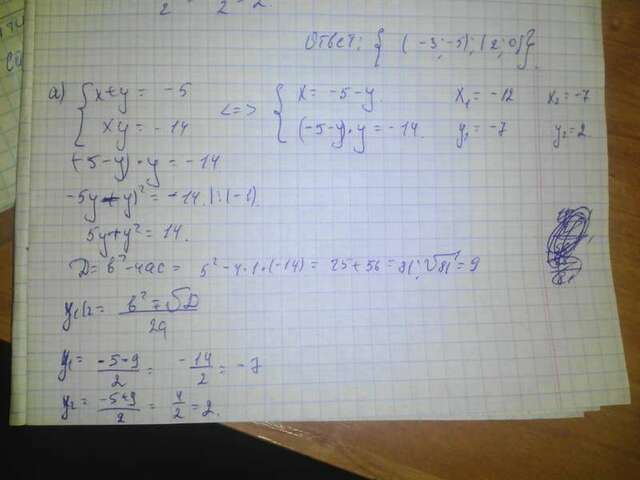 2 2 2
Ответ: { (-3;-5); (2;0)}.
а) { x+y = -5 <=> { x = -5-y. x₁ = -12 x₂ = -7
xy = -14 (-5-y)·y = -14. y₁ = -7 y₂ = 2
(-5-y)·y = -14
-5y - y² = -14. |:(-1).
5y+y² = 14.
D = b²-4ac = 5²-4·1·(-14) = 25+56 = 81; √81 = 9
y₁/₂ = b² ∓ √D / 2a
y₁ = -5-9 / 2 = -14 / 2 = -7
y₂ = -5+9 / 2 = 4 / 2 = 2.